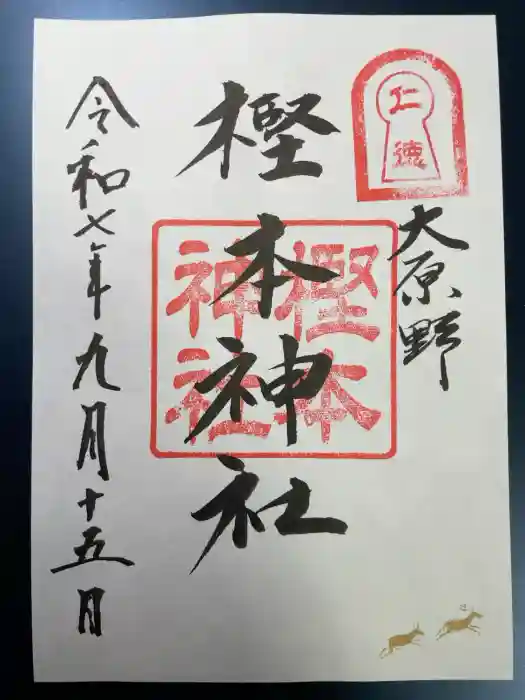 仁徳
大原野
樫本神社
樫本
神社
令和七年九月十五日